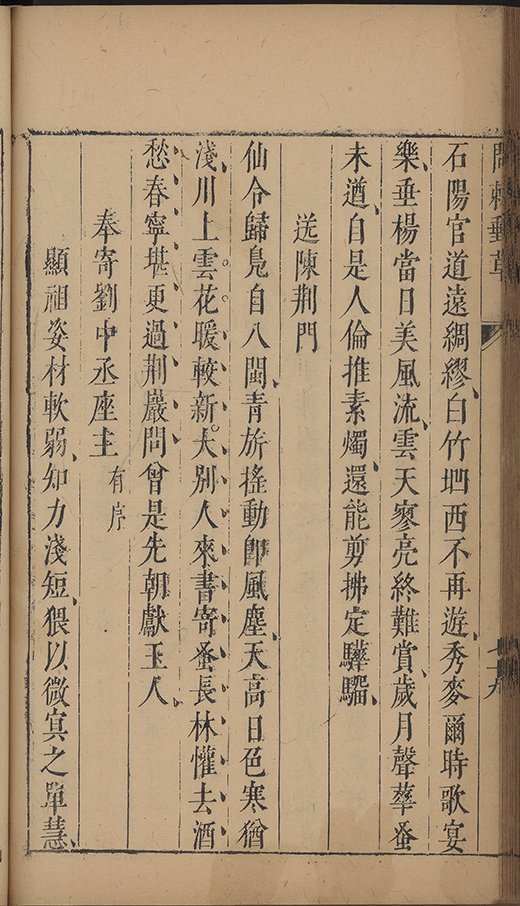 問棘郵草
石陽官道遠綢繆白竹堦西不再遊秀麥爾時歌宴
樂垂楊當日美風流雲天寥亮終難賞歲月聲華蚤
未遒自是人倫推素燭還能剪拂定驊騮
送陳荆門
仙令歸鳧自八閩青旂搖動卽風塵天高日色寒猶
淺川上雲花暖較新大別人來書寄蚤長林懽去酒
愁春寧堪更過荆巖問曾是先朝獻玉人
奉寄劉中丞座主有序
顯祖姿材軟弱知力淺短猥以微寘之單慧